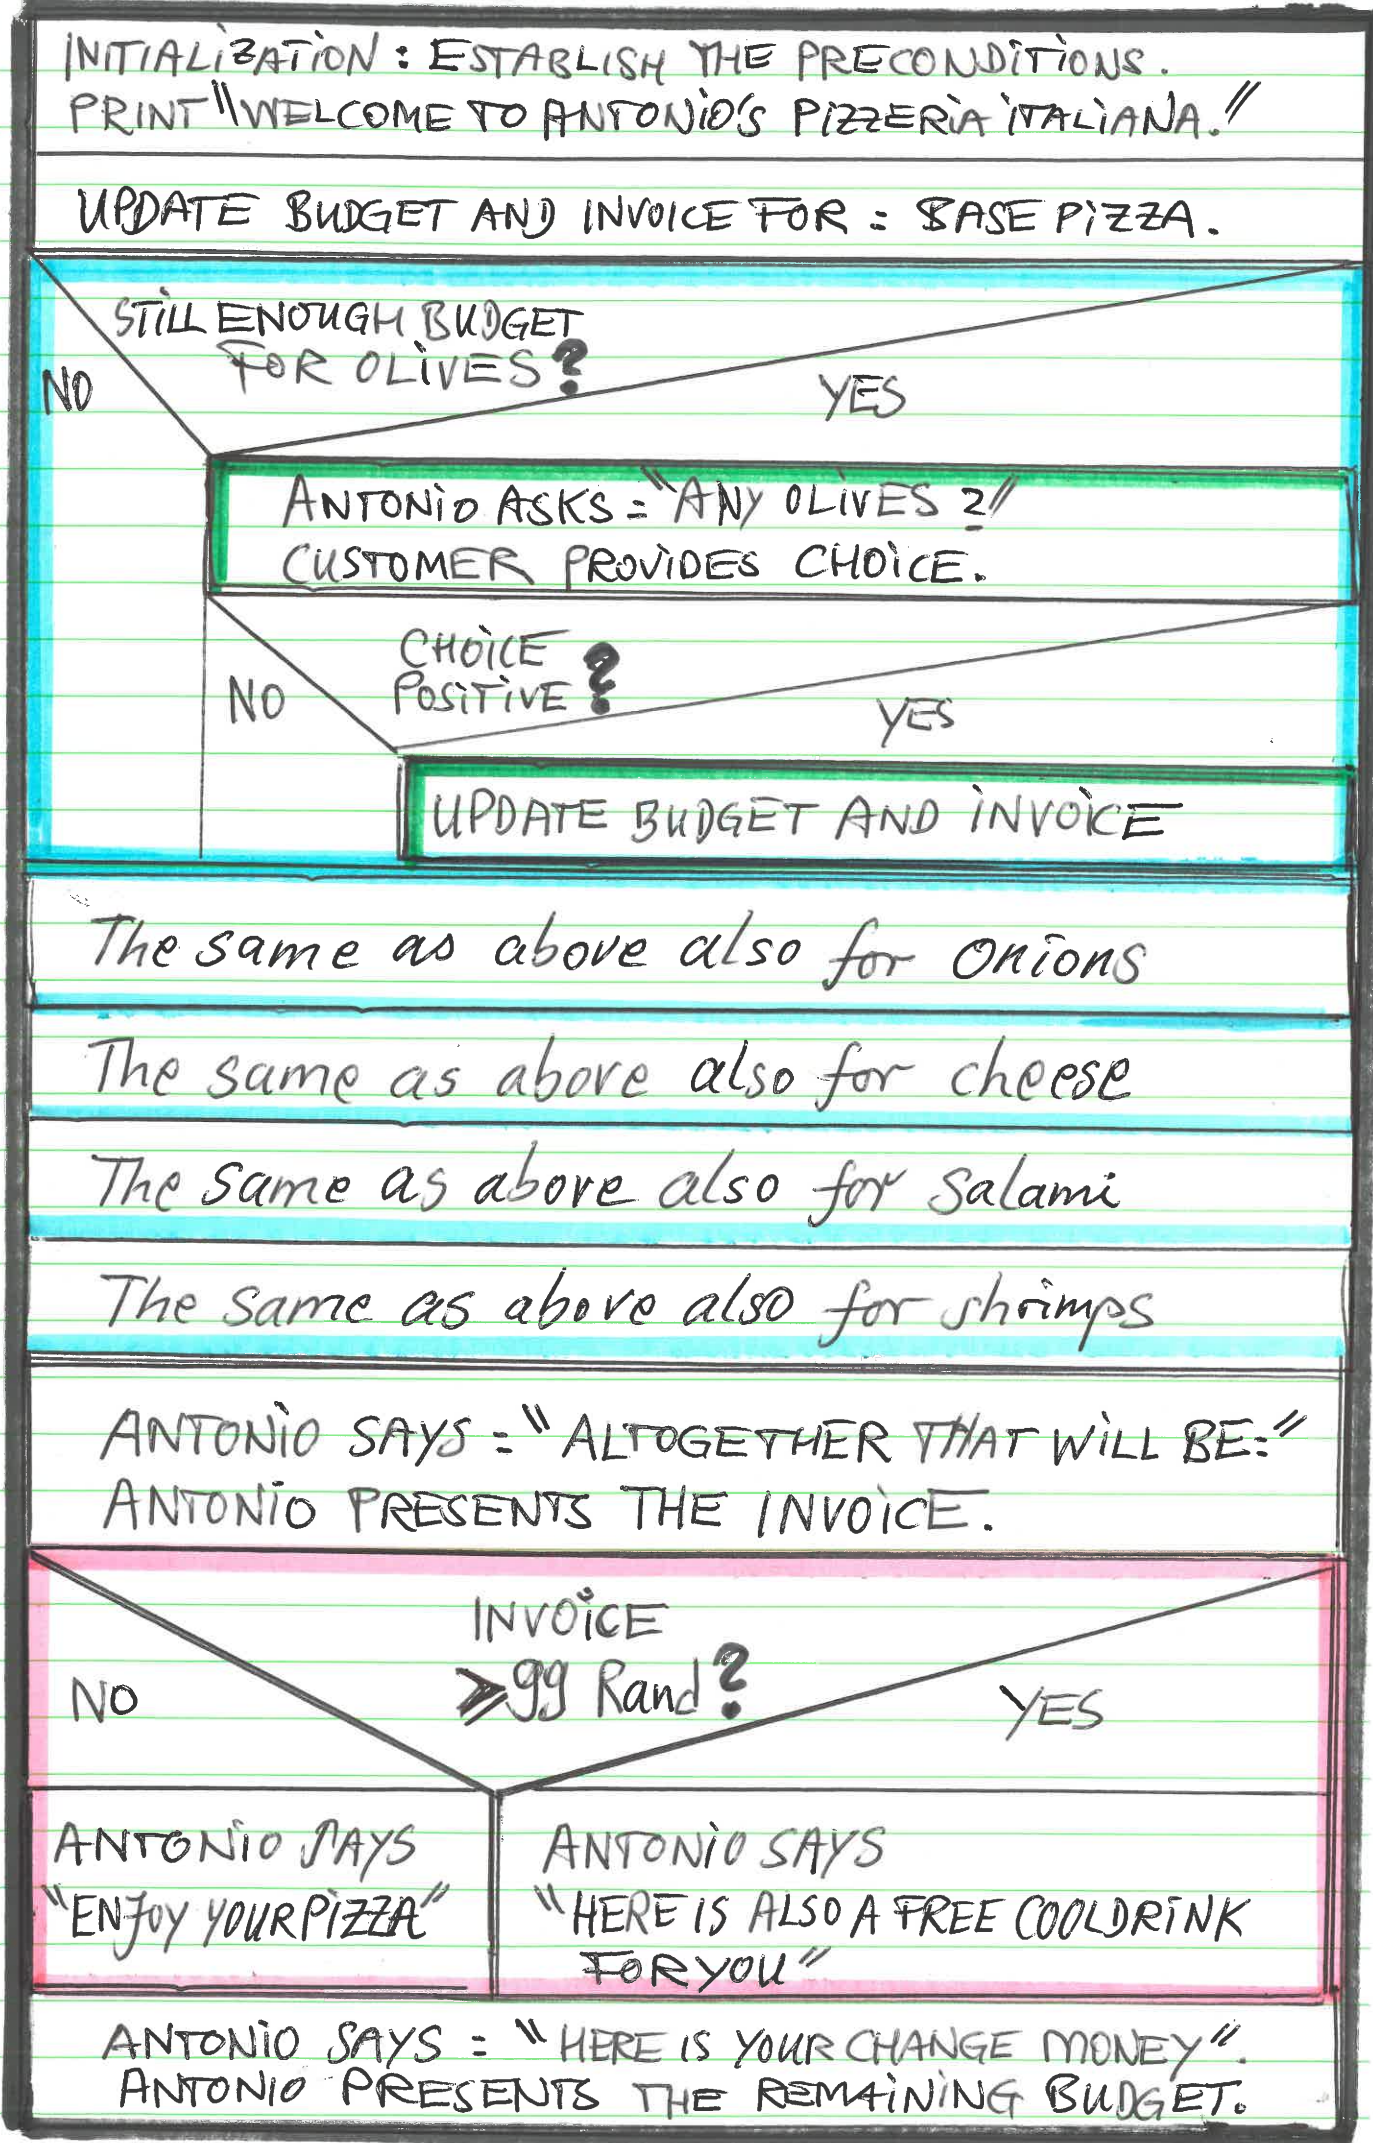 INITIALIZATION : ESTABLISH THE PRECONDITIONS.
PRINT "WELCOME TO ANTONIO'S PIZZERIA ITALIANA."
UPDATE BUDGET AND INVOICE FOR : BASE PIZZA.
STILL ENOUGH BUDGET
FOR OLIVES ?
NO
YES
ANTONIO ASKS : "ANY OLIVES ?"
CUSTOMER PROVIDES CHOICE.
CHOICE
POSITIVE ?
NO
YES
UPDATE BUDGET AND INVOICE
The same as above also for onions
The same as above also for cheese
The same as above also for salami
The same as above also for shrimps
ANTONIO SAYS : "ALTOGETHER THAT WILL BE:"
ANTONIO PRESENTS THE INVOICE.
INVOICE
≥99 Rand ?
NO
YES
ANTONIO SAYS
"ENJOY YOUR PIZZA"
ANTONIO SAYS
"HERE IS ALSO A FREE COOLDRINK
FOR YOU"
ANTONIO SAYS : "HERE IS YOUR CHANGE MONEY".
ANTONIO PRESENTS THE REMAINING BUDGET.